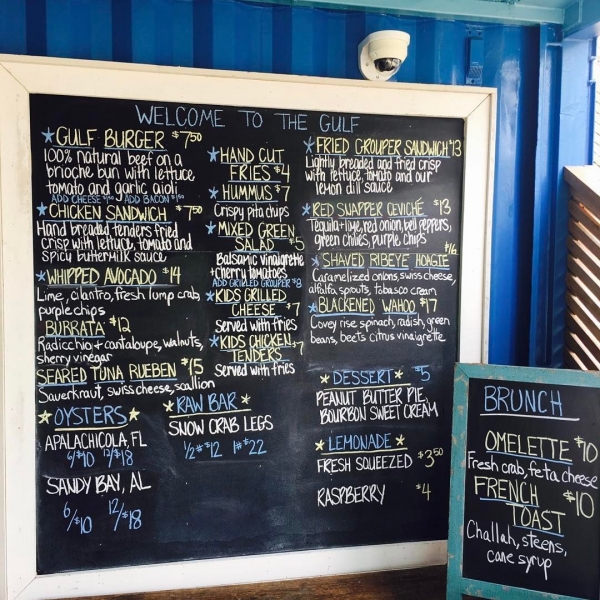 WELCOME TO THE GULF
GULF BURGER $7.50
100% natural beef on a
brioche bun with lettuce
tomato and garlic aioli
ADD CHEESE $1.00 ADD BACON $1.50
CHICKEN SANDWICH $7.50
Hand breaded tenders fried
crisp with lettuce, tomato and
spicy buttermilk sauce
WHIPPED AVOCADO $14
Lime, cilantro, fresh lump crab,
purple chips
BURRATA $12
Radicchio + cantaloupe, walnuts,
sherry vinegar
SEARED TUNA RUEBEN $15
Sauerkraut, swiss cheese, scallion
OYSTERS
APALACHICOLA, FL
6/$10 12/$18
SANDY BAY, AL
6/$10 12/$18
HAND CUT
FRIES $4
HUMMUS $7
Crispy pita chips
MIXED GREEN
SALAD $5
Balsamic vinaigrette
+ cherry tomatoes
ADD GRILLED GROUPER $8
KIDS GRILLED
CHEESE $7
Served with fries
KIDS CHICKEN
TENDERS $7
Served with fries
RAW BAR
SNOW CRAB LEGS
1/2# $12 1# $22
FRIED GROUPER SANDWICH $13
Lightly breaded and fried crisp
with lettuce, tomato and our
lemon dill sauce
RED SNAPPER CEVICHÉ $13
Tequila + lime, red onion, bell peppers,
green chilies, purple chips
SHAVED RIBEYE HOAGIE $16
Caramelized onions, swiss cheese,
alfalfa sprouts, tobasco cream
BLACKENED WAHOO $17
Covey rise, spinach, radish, green
beans, beets citrus vinaigrette
DESSERT $5
PEANUT BUTTER PIE,
BOURBON SWEET CREAM
LEMONADE
FRESH SQUEEZED $3.50
RASPBERRY $4
BRUNCH
OMELETTE $10
Fresh crab, feta cheese
FRENCH $10
TOAST
Challah, steens,
cane syrup